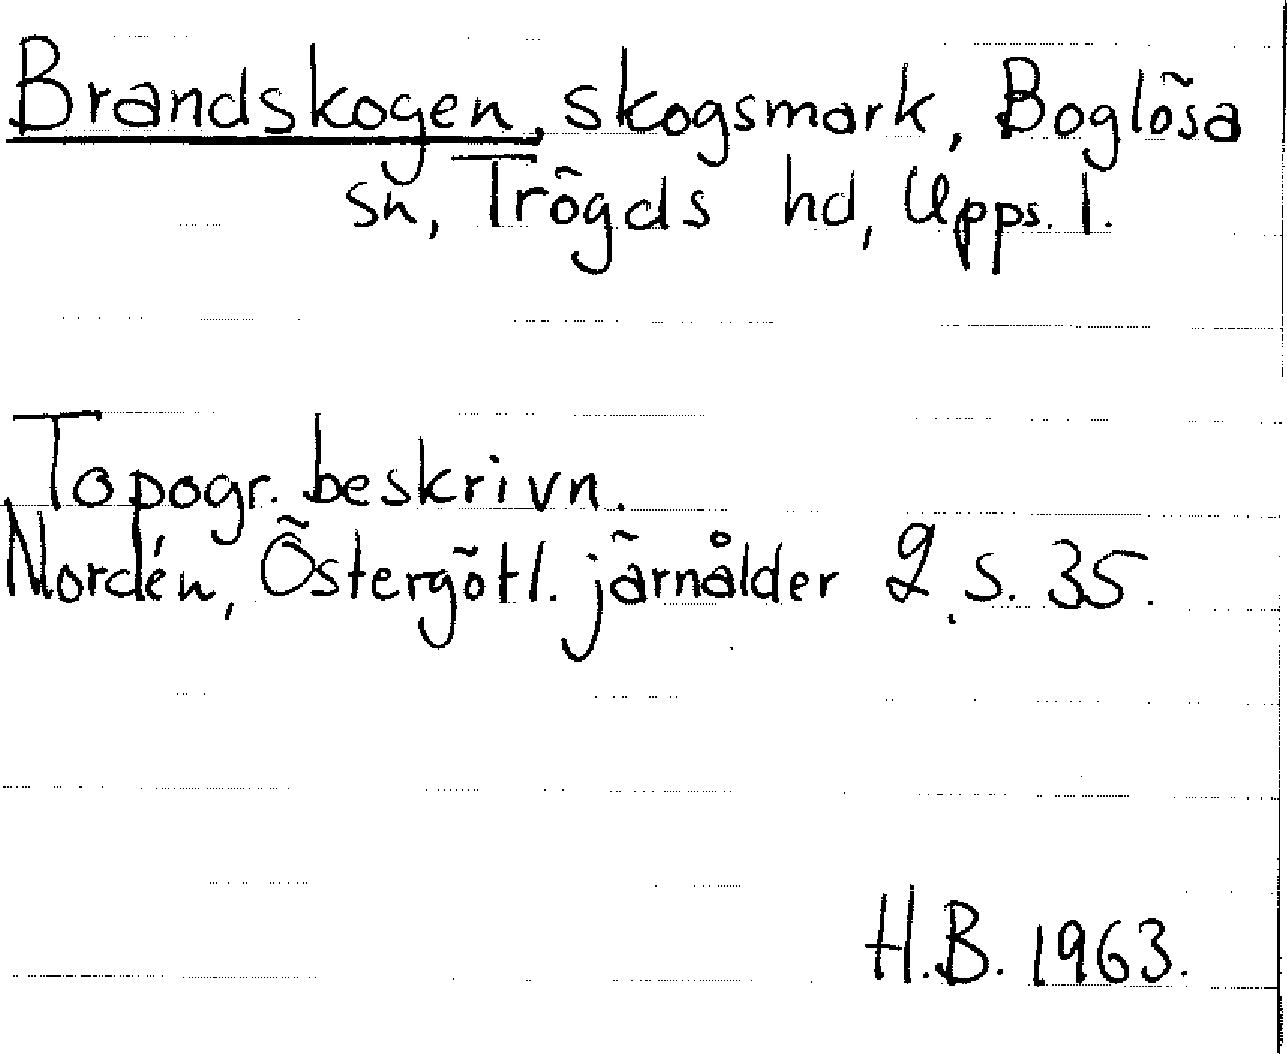 Brandskogen, skogsmark, Boglösa
sn, Trögds hd, Upps. l.
Topogr. beskrivn.
Nordén, Östergötl. järnålder 2, s. 35.
H.B. 1963.